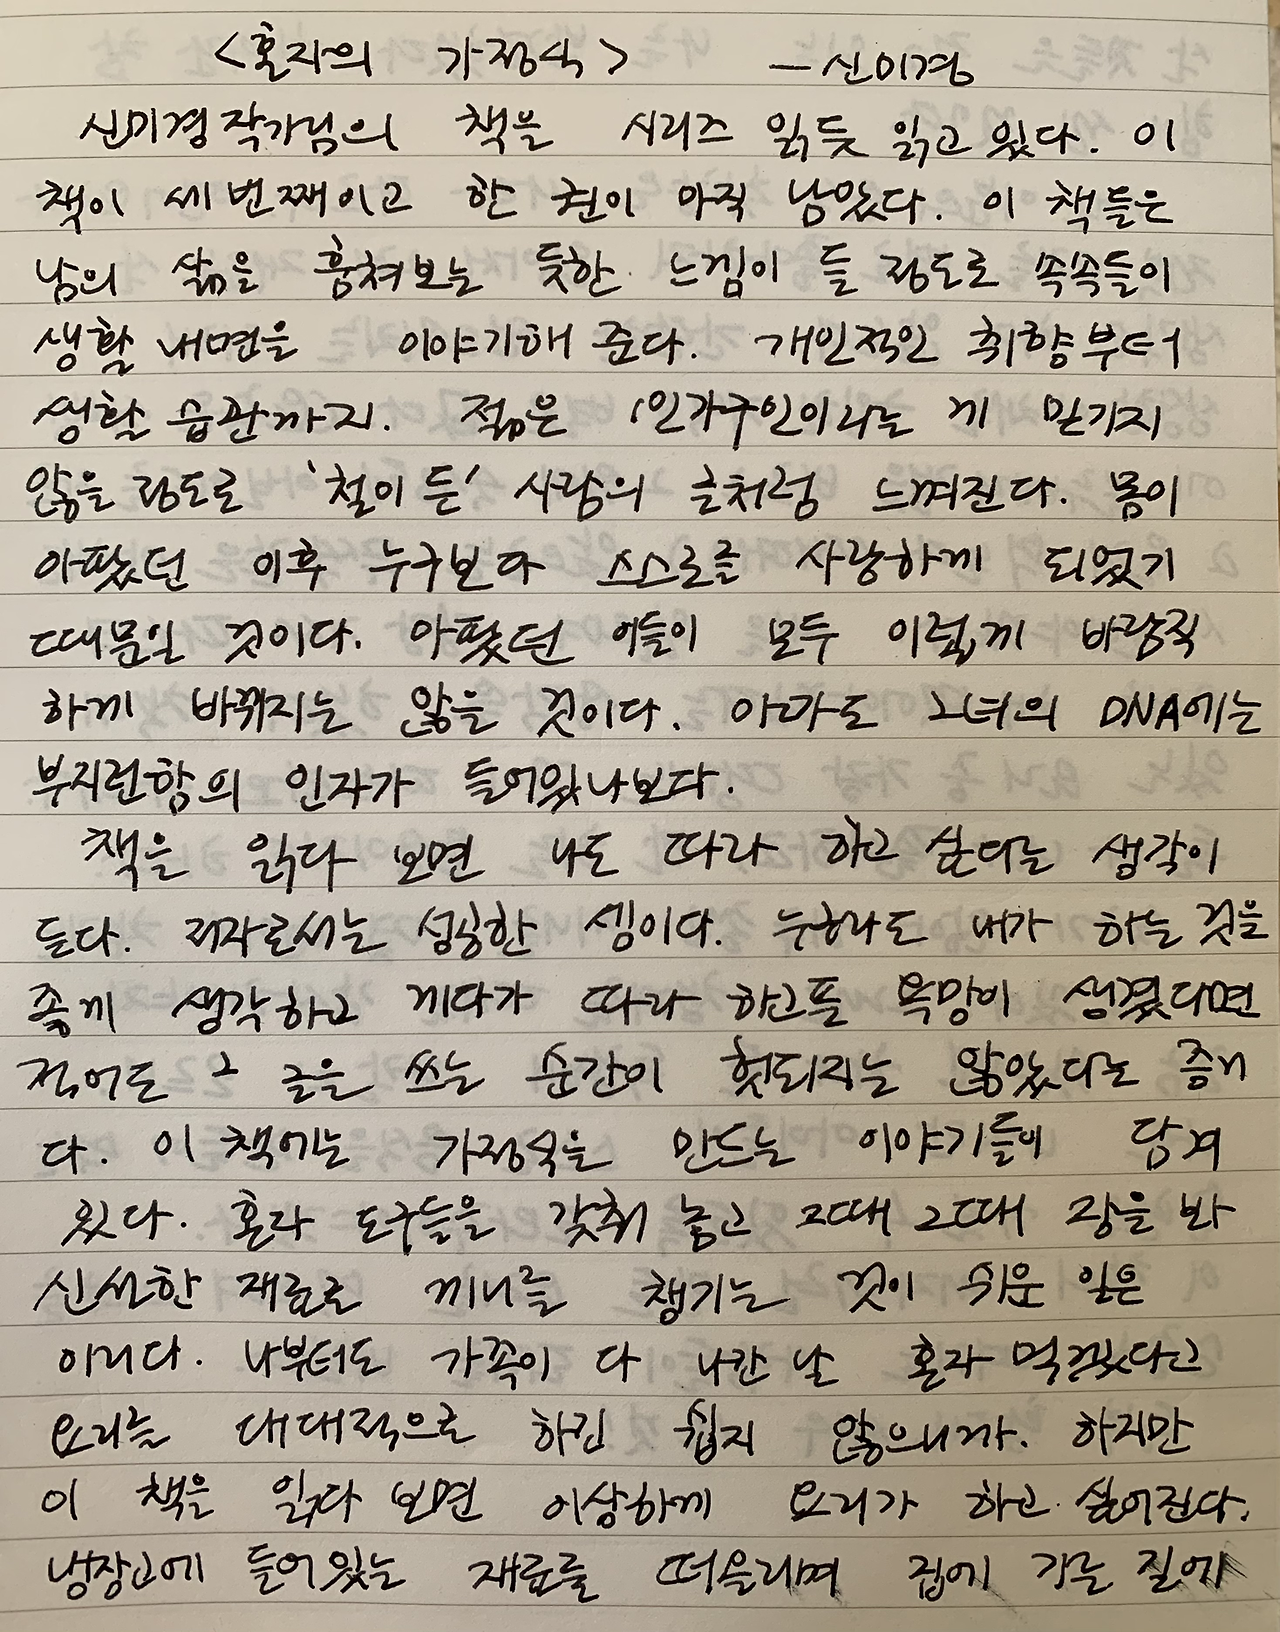 <혼자의 가정식> - 신미경
신미경작가님의 책을 시리즈 읽듯 읽고 있다. 이
책이 세번째이고 한 권이 아직 남았다. 이 책들은
남의 삶을 훔쳐보는 듯한 느낌이 들 정도로 쏙쏙들이
생활 내면을 이야기해 준다. 개인적인 취향부터
생활 습관까지. 젊은 1인가구인이라는 게 믿기지
않을 정도로 '철이 든' 사람의 글처럼 느껴진다. 몸이
아팠던 이후 누구보다 스스로를 사랑하게 되었기
때문일 것이다. 아팠던 이들이 모두 이렇게 바람직
하게 바뀌지는 않을 것이다. 아마도 그녀의 DNA에는
부지런함의 인자가 들어있나보다.
책을 읽다 보면 나도 따라 하고 싶다는 생각이
든다. 저자로서는 성공한 셈이다. 누하라도 내가 하는 것을
좋게 생각하고 게다가 따라 하고픈 욕망이 생겼다면
적어도 그 글을 쓰는 순간이 헛되지는 않았다는 증거
다. 이 책에는 가정식을 만드는 이야기들이 담겨
있다. 혼자 도구들을 갖춰 놓고 그때 그때 장을 봐
신선한 재료로 끼니를 챙기는 것이 쉬운 일은
아니다. 나부터도 가족이 다 나간 날 혼자 먹겠다고
요리를 대대적으로 하긴 쉽지 않으니까. 하지만
이 책을 읽다 보면 이상하게 요리가 하고 싶어진다.
냉장고에 들어있는 재료를 떠올리며 집에 가는 길에